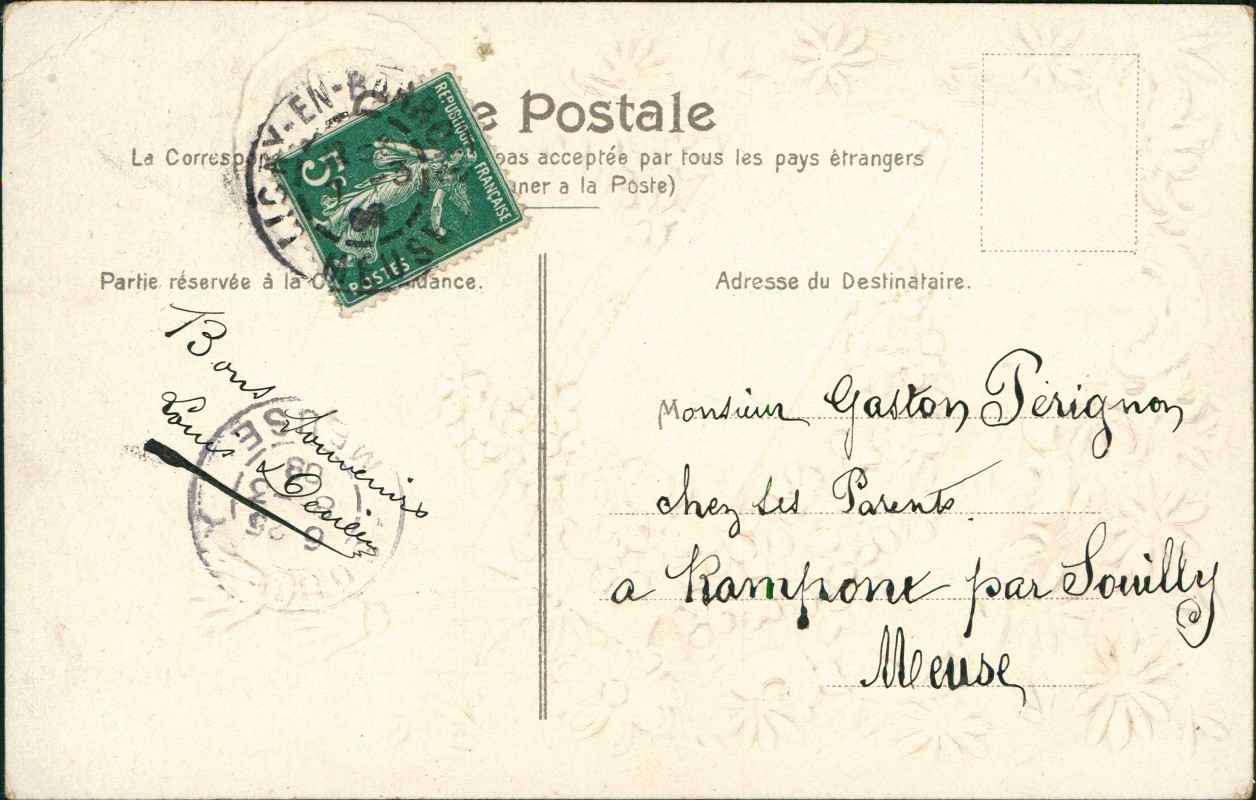 e Postale
La Corresp pas acceptée par tous les pays étrangers
gner a la Poste)
LIGNY-EN-BARROIS
MEUSE
08
REPUBLIQUE FRANÇAISE
5c
POSTES
Partie réservée à la C dance.
Adresse du Destinataire.
Bons Souvenirs
Louis
MEUSE
6
25
3
08
Monsieur Gaston Pérignon
chez ses Parents
a Rampont par Souilly
Meuse